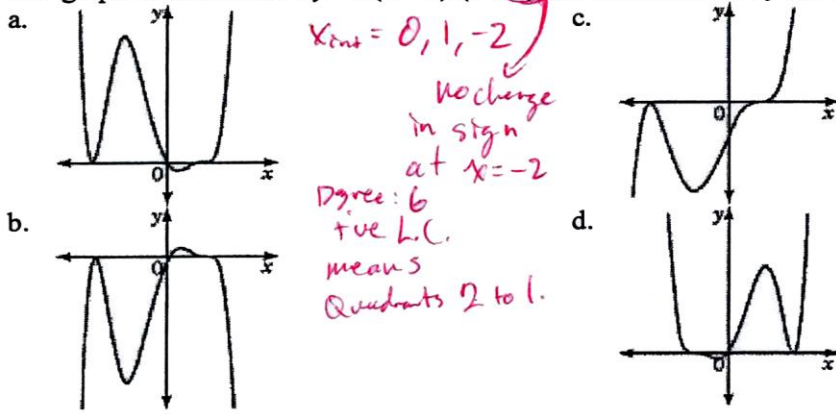 a.
y
0
x
x int = 0, 1, -2
no change
in sign
at x=-2
Dgree: 6
+ve L.C.
means
Quadrants 2 to 1.
c.
y
0
x
b.
y
0
x
d.
y
0
x